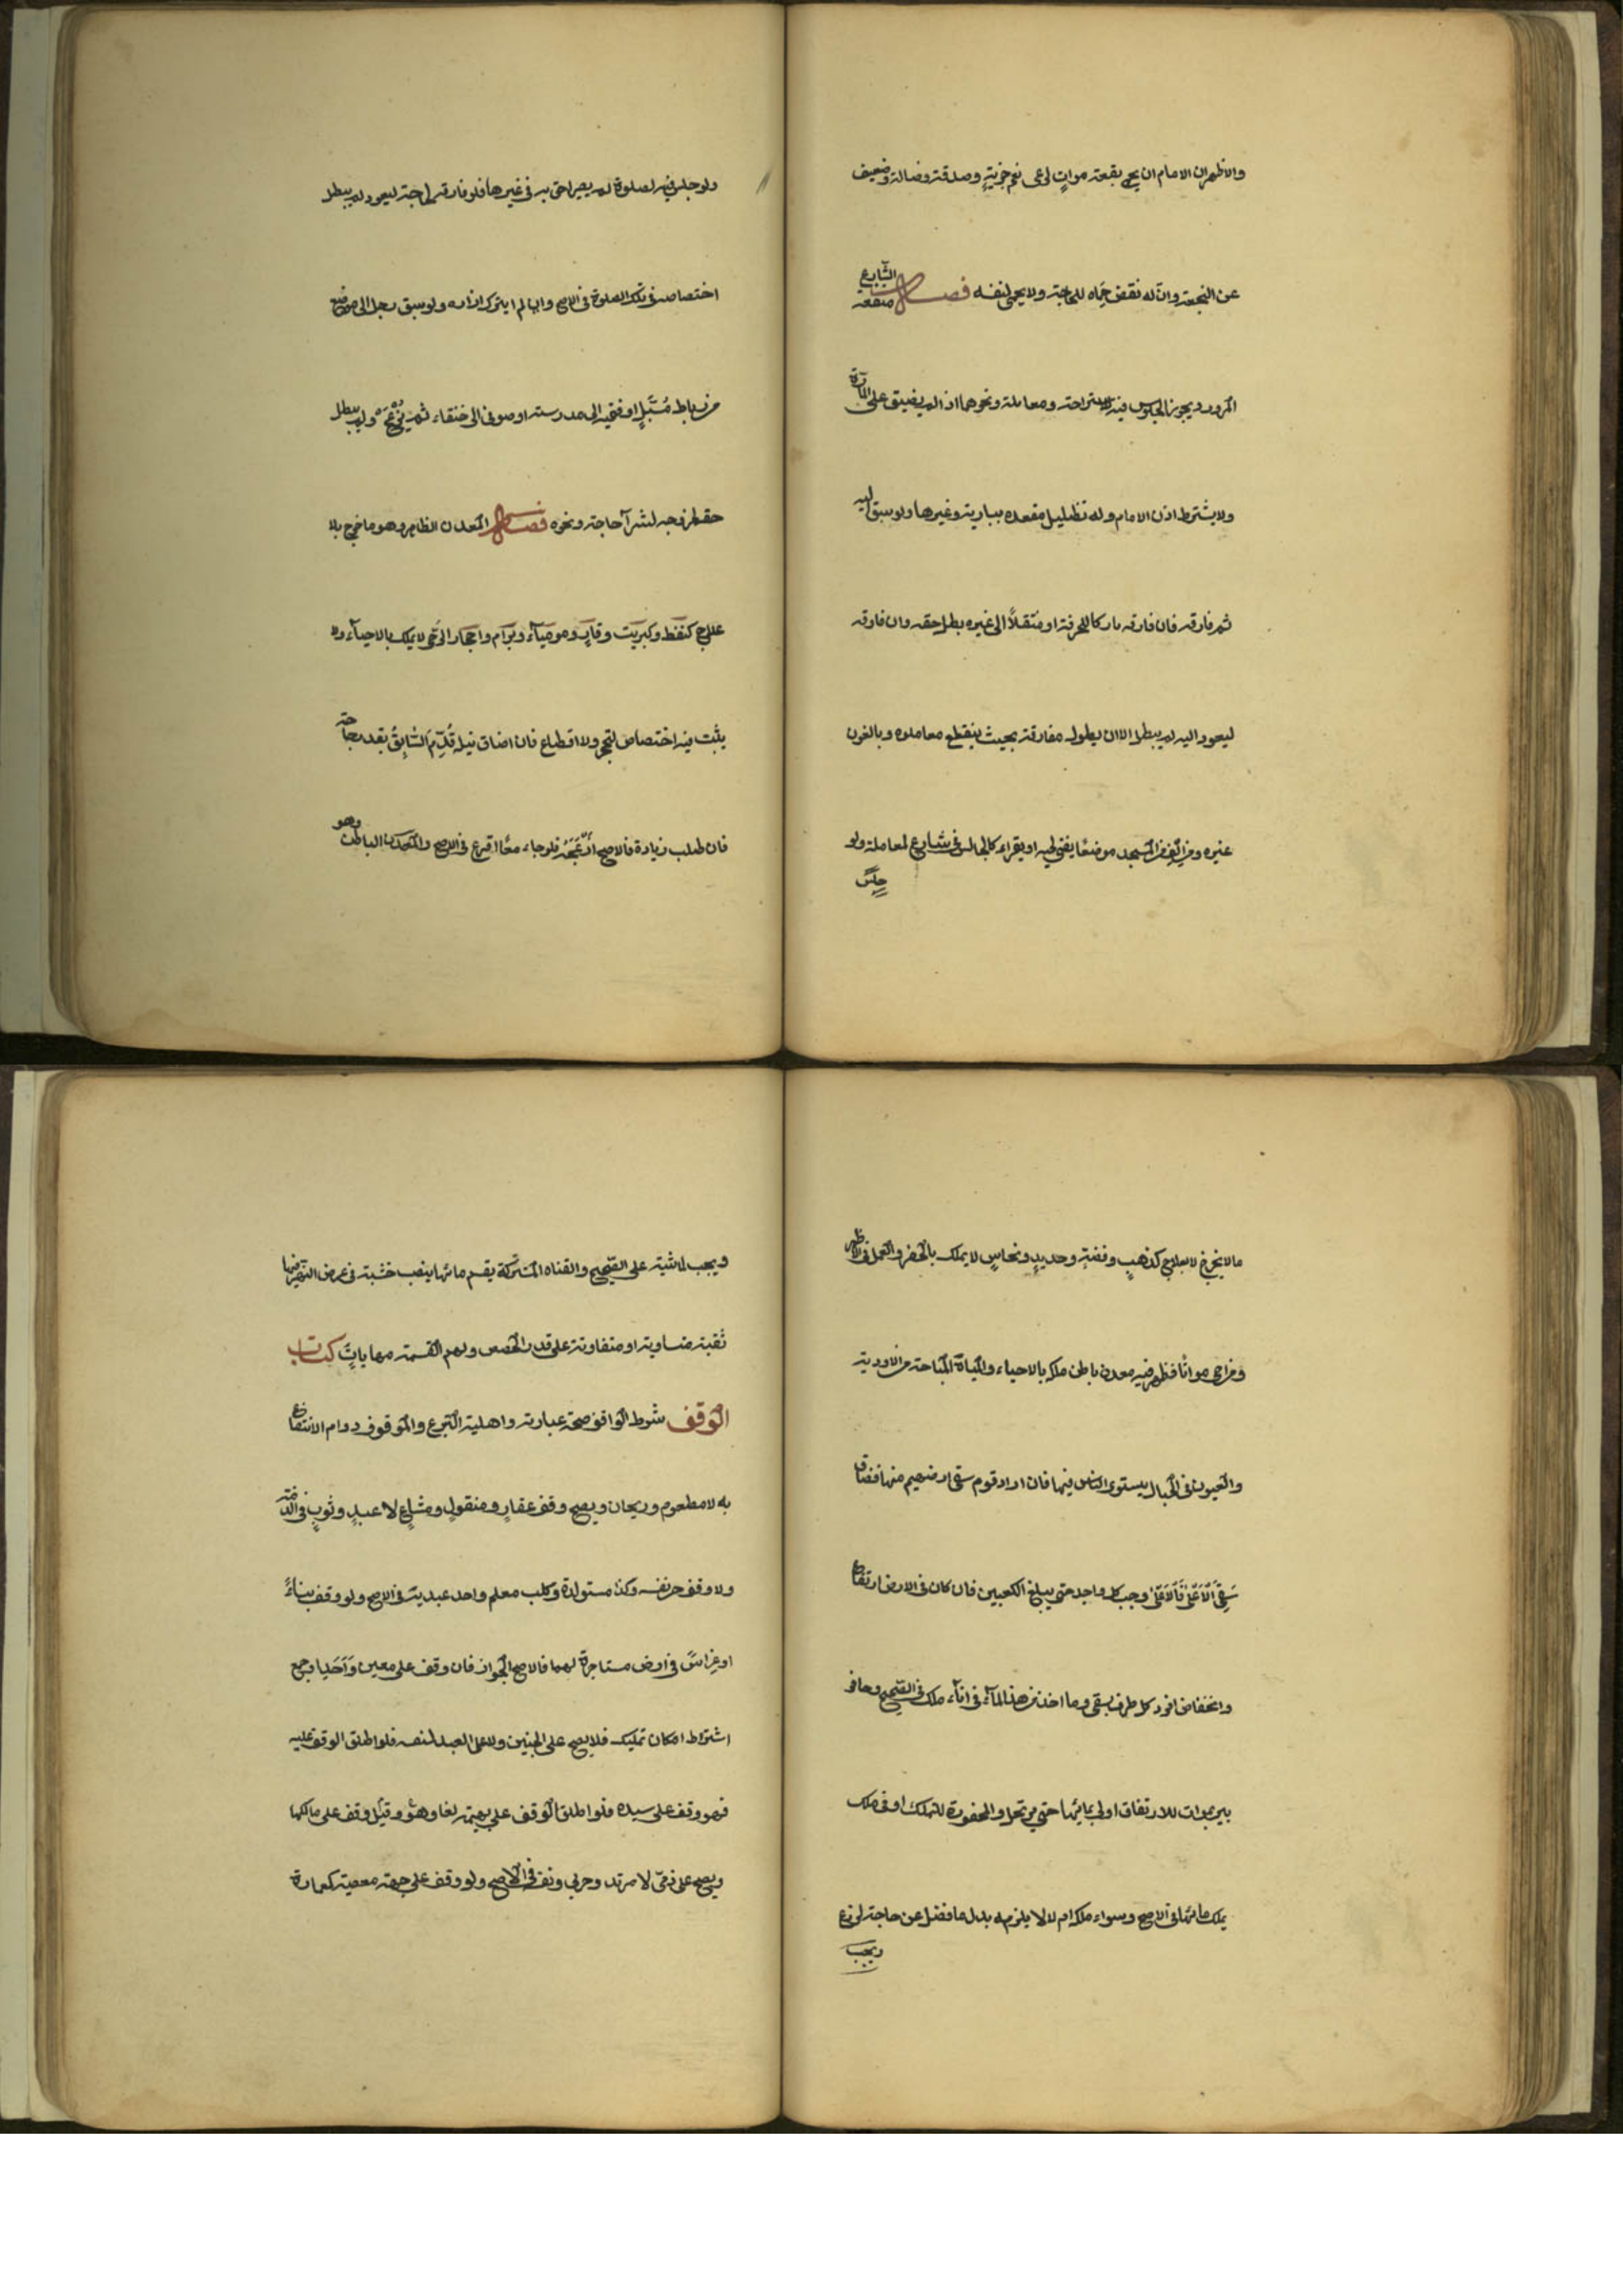 والاظهر ان الامام ان يحمي بقعة موات لرعى نعم جزية وصدقة وضالة وضعيف
عن النجعة وان له نقض حماه للحاجة ولا يحمي لنفسه فصل منفعة الشارع
المرور ويجوز الجلوس فيه لاستراحة ومعاملة ونحوهما اذا لم يضيق على المارة
ولا يشترط اذن الامام وله تظليل مقعده ببارية وغيرها ولو سبق اليه
ثم فارقه فان فارقه تاركا للحرفة او منتقلاً الى غيره بطل حقه وان فارقه
ليعود اليه لم يبطل الا ان يطول مفارقته بحيث ينقطع معاملوه ويالفون
غيره ومن الف من المسجد موضعًا يفتي فيه او يقراء كالجالس في شارع لمعاملة ولو
جلس
ولو جلس فيه لصلوة لم يصر احق به في غيرها فلو فارقه لحاجة ليعود لم يبطل
اختصاصه في تلك الصلوة في الاصح وان لم يترك ازاره ولو سبق رجل الى موضع
من رباط مُسَبَّلٍ او فقيه الى مدرسة او صوفى الى خنقاء ثم يُزْعَج ولم يبطل
حقه بخروجه لشرآ حاجة ونحوه فصل المعدن الظاهر وهو ما خرج بلا
علاج كنفط وكبريت وقارٍ وموميآء وبرام واحجار الرَّحى لا يملك بالاحيآء ولا
يثبت فيه اختصاص لتحجر ولا اقطاع فان اضاق نيله قُدِّمَ السَّابِقُ بقدر حاجته
فان طلب زيادة فالاصح ازعاجه فلو جاء معًا اقرع في الاصح والمعدن الباطن وهو
مالا يخرج الا بعلاج كذهبٍ وفضةٍ وحديدٍ ونحاسٍ لا يملك بالحفر والعمل في الاظهر
ومن احى مواتًا فظهر فيه معدن باطن ملكه بالاحياء والمياة المباحة من الاودية
والعيون في الجبال يستوى الناس فيها فان اراد قوم سقى ارضهيم منها فضاق
سَقِىَ الَاَعلى فَالَاعَلى وحبس كل واحد حتى يبلغ الكعبين فان كان في الارض ارتفاع
وانخفاض افرد كل طرف بسقى وما اخذ من هذا المآء في انآء ملك في الصحيح وحافر
بير بموات للارتفاق اولى بمائها حتى يرتحل والمحفورة للتملك او في ملك
يملك مائها في الاصح وسواء ملكه ام لا لا يلزمه بذل ما فضل عن حاجته لزرع
ويجب
ويجب لماشية على الصّحيح والقناه المشتركة يقسم مائها بنصب خشبة في عرض النهر فيها
ثقبة متساوية او متفاوتة على قدر الحصص ولهم القسمة مهاياتً كتاب
الوقف شرط الواقف صحة عبارته واهلية التبرع والموقوف دوام الانتفاع
به لا مطعوم وريحان ويصح وقف عقارٍ ومنقولٍ ومشاعٍ لا عبدٍ وثوبٍ في الذمة
ولا وقف حر نفسه وكذا مستولدة وكلب معلم واحد عبديه في الاصح ولو وقف بناءً
او غراسً في ارض مستاجرة لهما فالاصح الجواز فان وقف على معين واحد او جمع
اشتراط امكان تمليكه فلا يصح على الجنين ولا على العبد لنفسه فلو اطلق الوقف عليه
فهو وقف على سيده فلو اطلق الوقف على بهيمة لغا وهو وقيل وقف على مالكها
ويصح على ذمّي لا مرتد وحربي ونفسه في الاصح ولو وقف على جهة معصية كعمارة